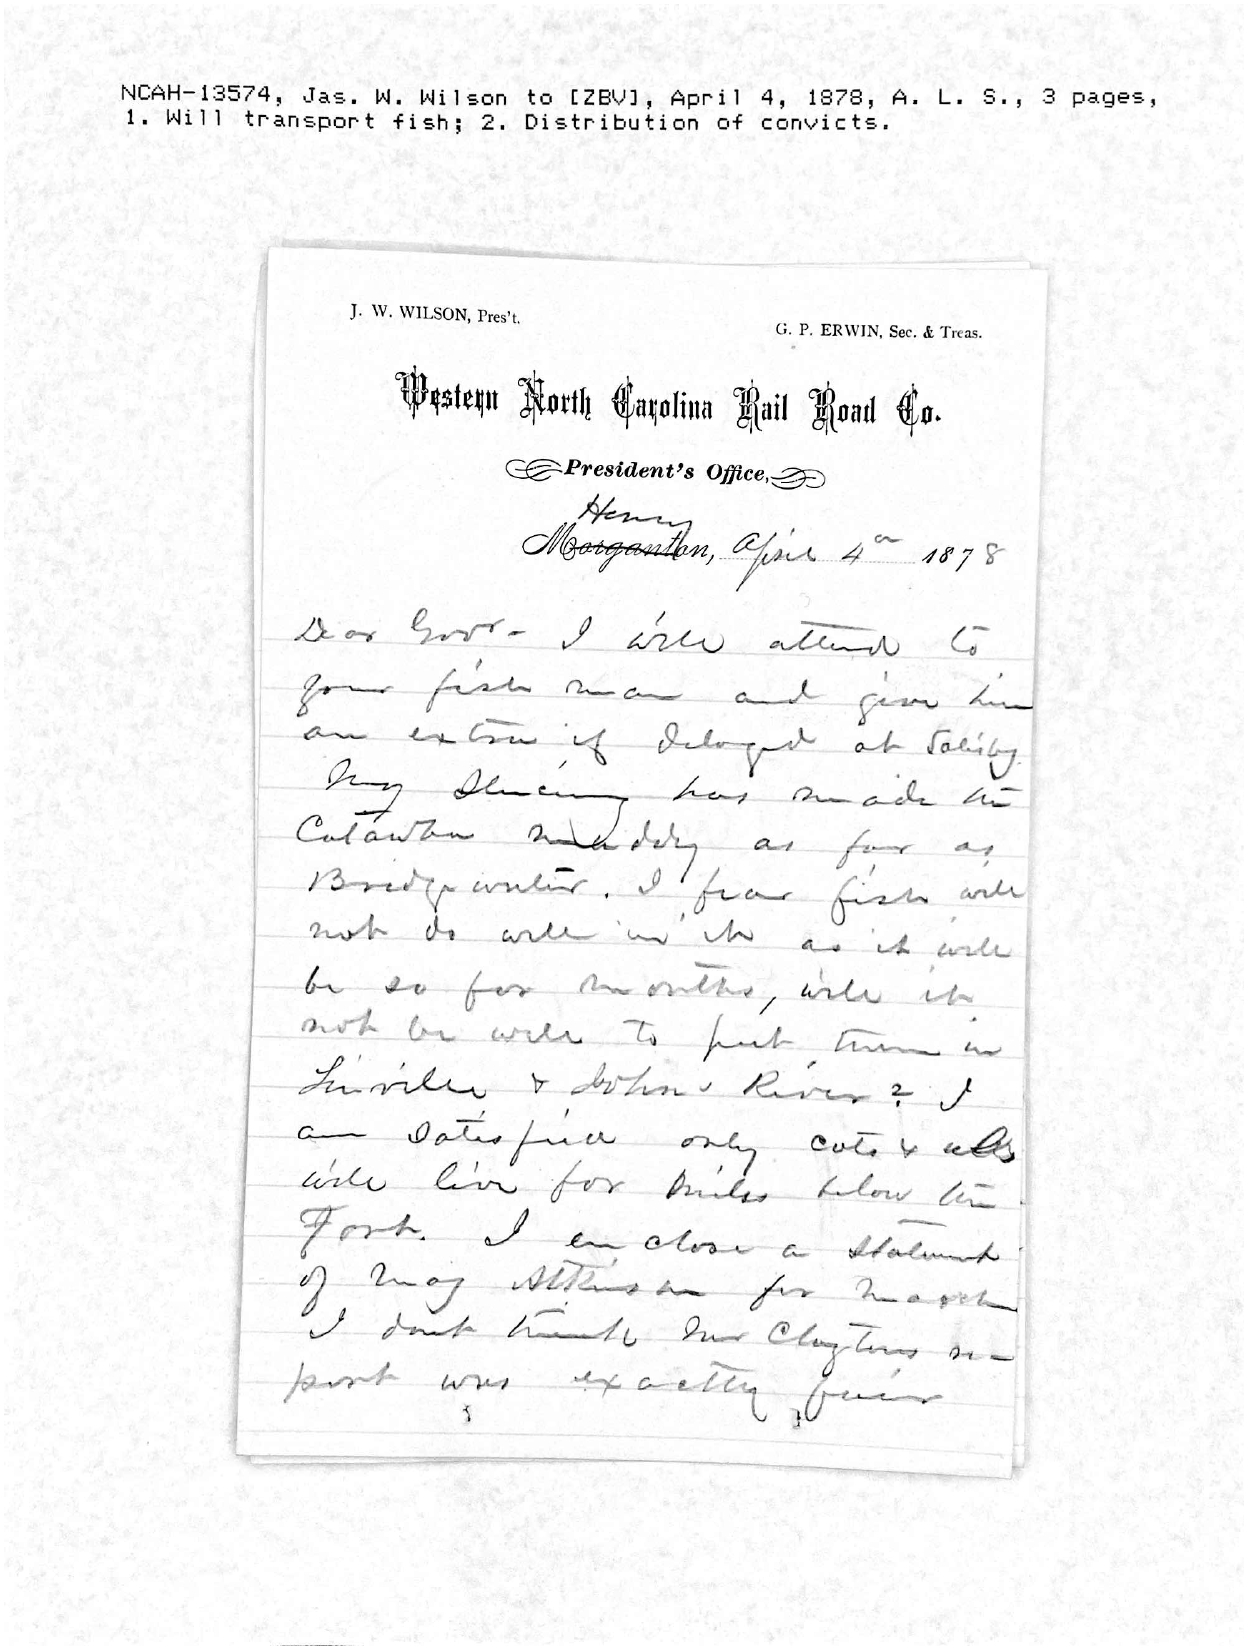 NCAH-13574, Jas. W. Wilson to [ZBV], April 4, 1878, A. L. S., 3 pages,
1. Will transport fish; 2. Distribution of convicts.
J. W. WILSON, Pres't.
G. P. ERWIN, Sec. & Treas.
Western North Carolina Rail Road Co.
President's Office,
Henry
Morganton, April 4th 1878
Dear Govr - I will attend to
your fish man and give him
an extra if delayed at Salisby.
My sluicing has made the
Catawba muddy as far as
Bridgewater. I fear fish will
not do well in it as it will
be so for months, will it
not be well to put them in
Linville & Johns River? I
am satisfied only cats & eels
will live for miles below the
Fork. I enclose a statement
of Maj Atkinson for March
I dont think Mr Claytons re-
port was exactly fair